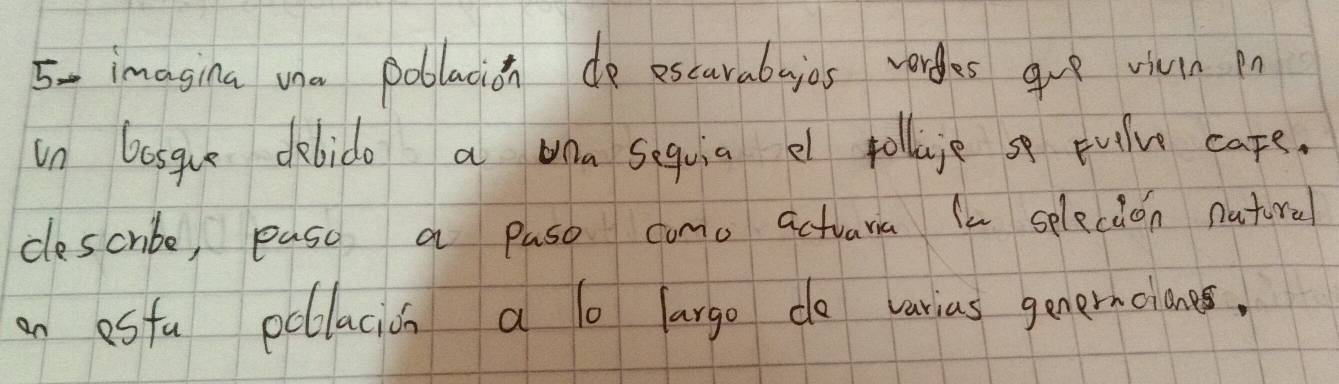 5- imagina una población de escarabajos verdes que viven en
un bosque debido a una sequia el follaje se vuelve cafe.
describe, paso a paso como actuaria la selección natural
en esta población a lo largo de varias generaciones.